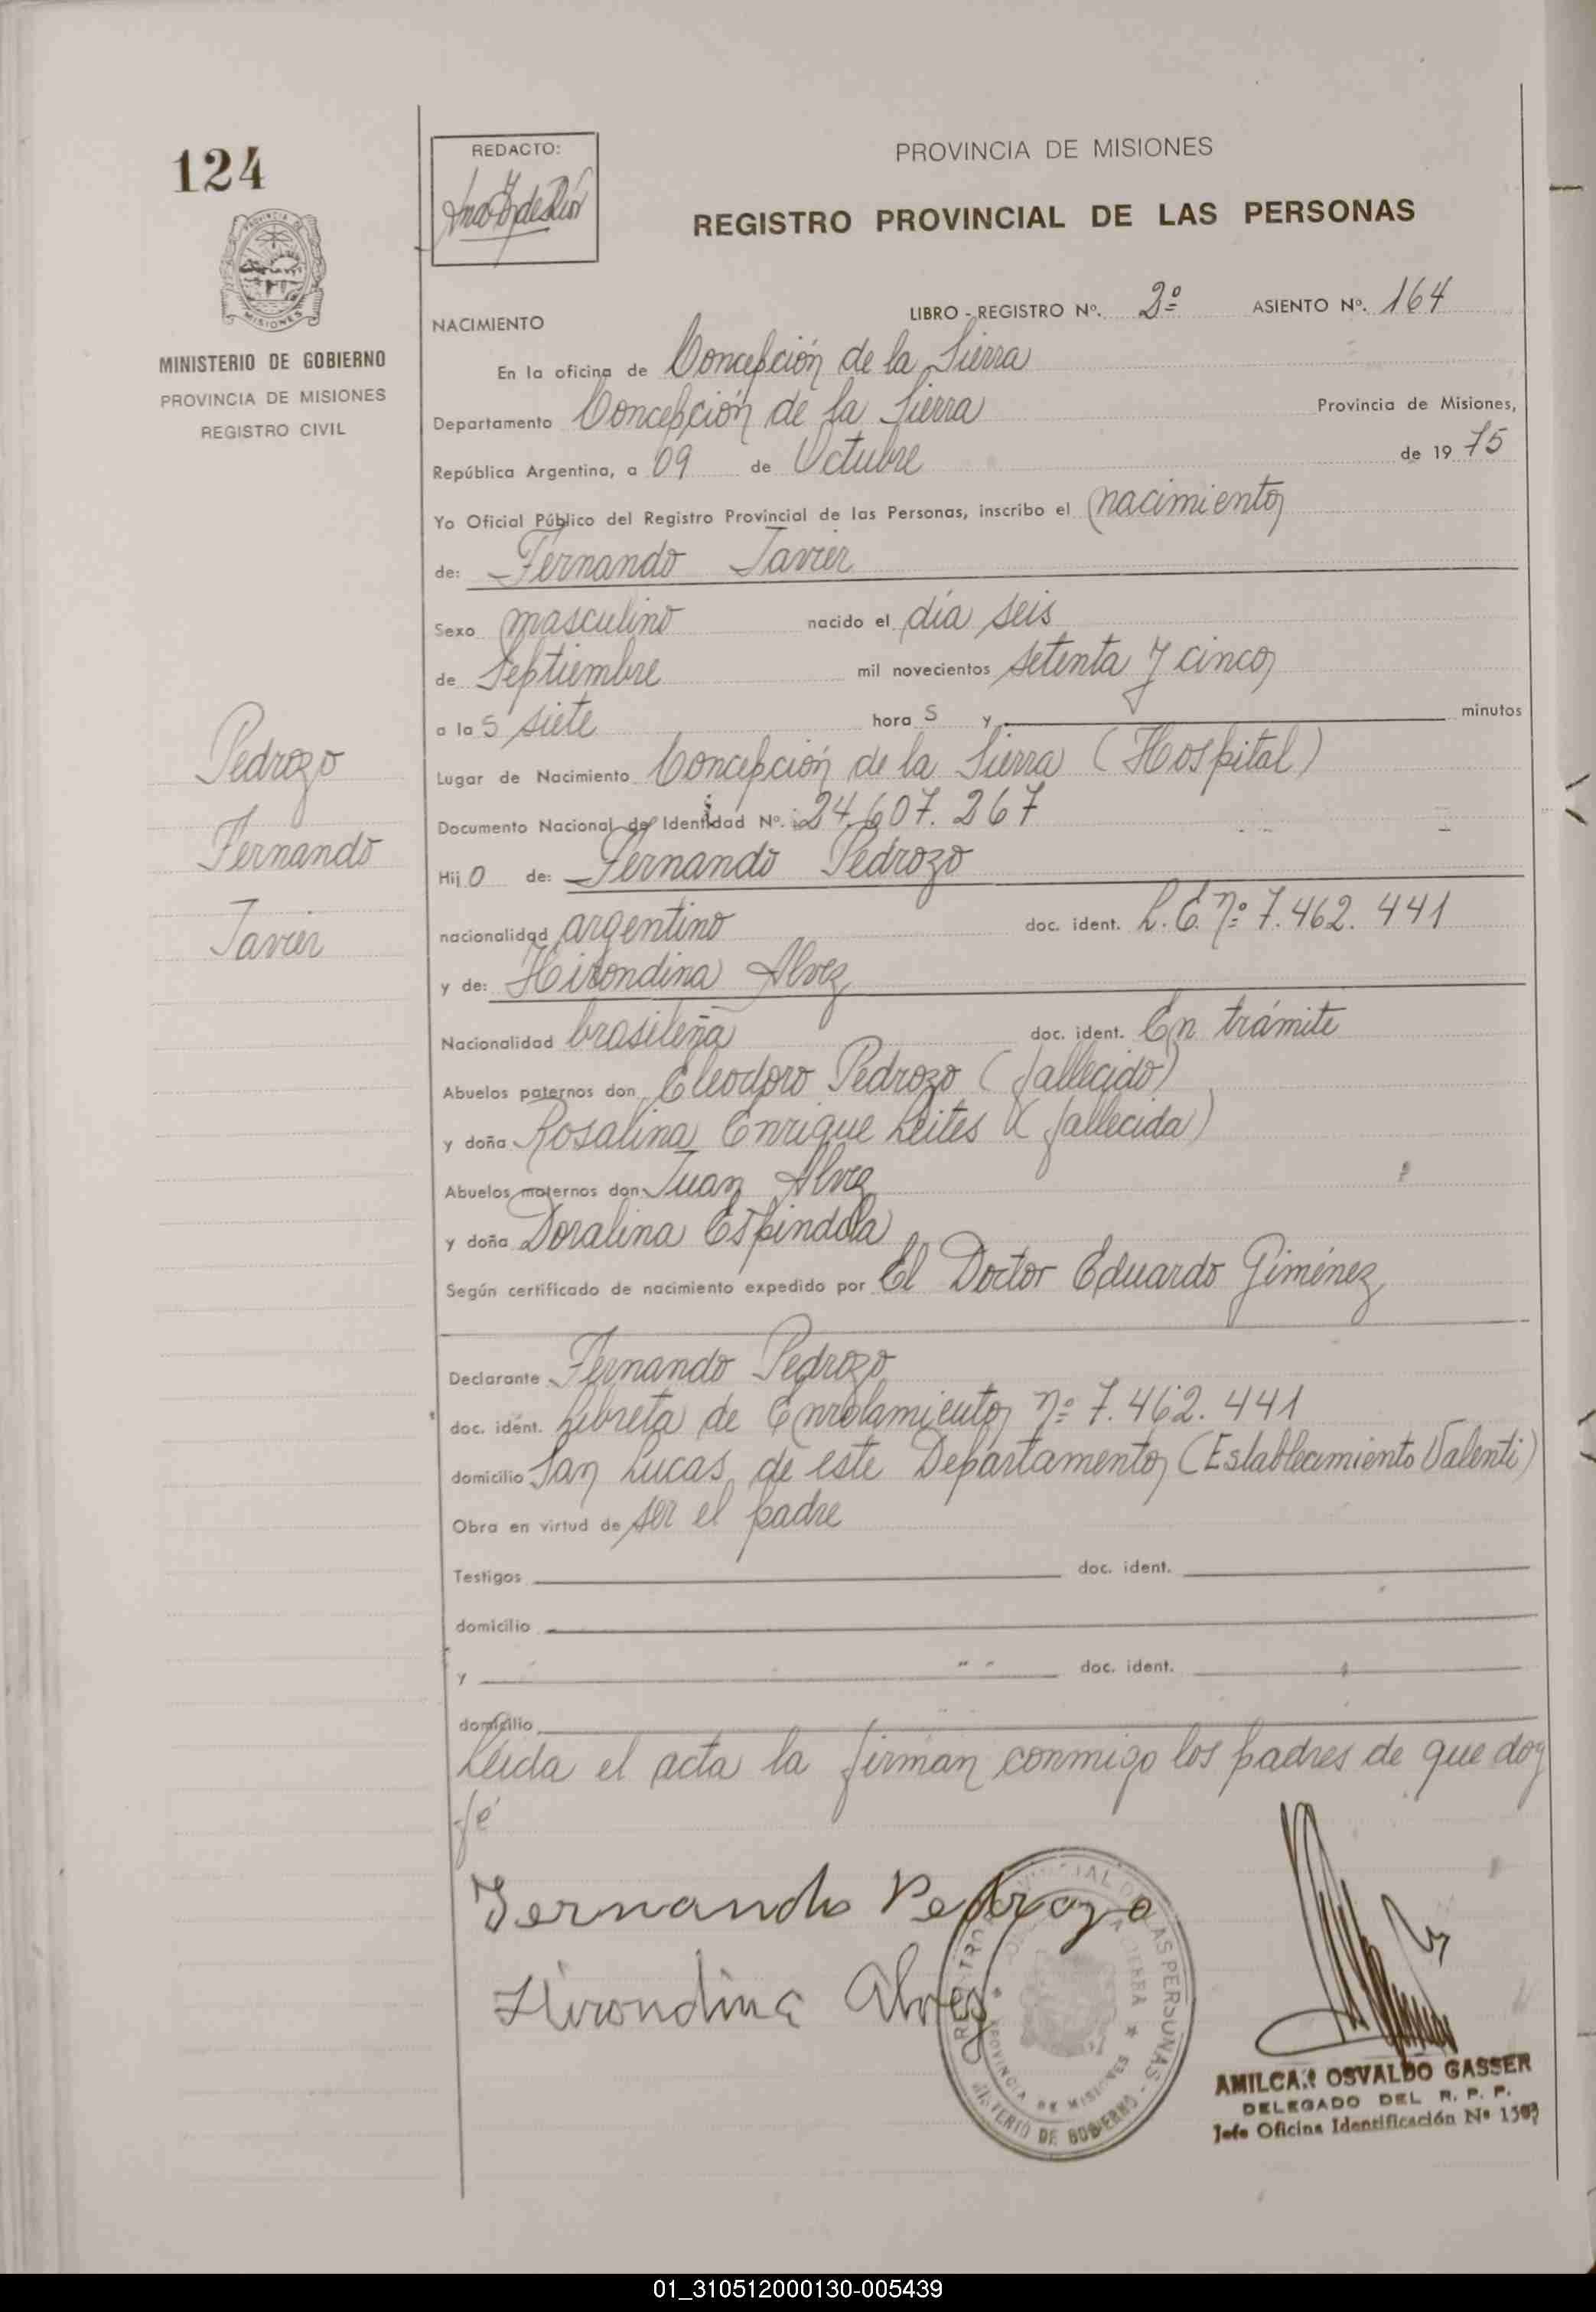 124
PROVINCIA DE MISIONES
MINISTERIO DE GOBIERNO
PROVINCIA DE MISIONES
REGISTRO CIVIL
Pedrozo
Fernando
Javier
REDACTO:
PROVINCIA DE MISIONES
REGISTRO PROVINCIAL DE LAS PERSONAS
LIBRO - REGISTRO Nº. 2º ASIENTO Nº. 164
NACIMIENTO
En la oficina de Concepción de la Sierra
Departamento Concepción de la Sierra Provincia de Misiones,
República Argentina, a 09 de Octubre de 19 75
Yo Oficial Público del Registro Provincial de las Personas, inscribo el nacimiento
de: Fernando Javier
Sexo masculino nacido el día seis
de Septiembre mil novecientos setenta y cinco
a la s siete hora s y minutos
Lugar de Nacimiento Concepción de la Sierra (Hospital)
Documento Nacional de Identidad Nº. 24.607.267
Hij o de: Fernando Pedrozo
nacionalidad argentino doc. ident. L.E. Nº 7.462.441
y de: Hirondina Alvez
Nacionalidad brasileña doc. ident. En trámite
Abuelos paternos don Eleodoro Pedrozo (fallecido)
y doña Rosalina Enrique Leites (fallecida)
Abuelos maternos don Juan Alvez
y doña Doralina Espindola
Según certificado de nacimiento expedido por El Doctor Eduardo Giménez
Declarante Fernando Pedrozo
doc. ident. Libreta de Enrolamiento Nº 7.462.441
domicilio San Lucas de este Departamento (Establecimiento Valenti)
Obra en virtud de ser el padre
Testigos doc. ident.
domicilio
y doc. ident.
domicilio
Leida el acta la firman conmigo los padres de que doy
fé
Fernando Pedrozo
Hirondina Alvez
REGISTRO PROVINCIAL DE LAS PERSONAS - MINISTERIO DE GOBIERNO
PROVINCIA DE MISIONES
AMILCAR OSVALDO GASSER
DELEGADO DEL R. P. P.
Jefe Oficina Identificación Nº
01_310512000130-005439